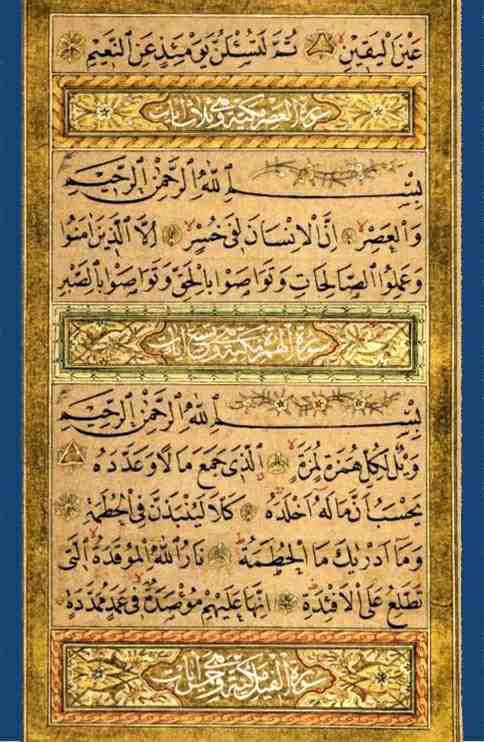 عَيْنَ الْيَقِينِ ثُمَّ لَتُسْئَلُنَّ يَوْمَئِذٍ عَنِ النَّعِيمِ
سورة العصر مكية وهي ثلاث آيات
بِسْمِ اللّٰهِ الرَّحْمٰنِ الرَّحِيمِ
وَالْعَصْرِ اِنَّ الْاِنْسَانَ لَفِى خُسْرٍ اِلَّا الَّذِينَ اٰمَنُوا
وَعَمِلُوا الصَّالِحَاتِ وَتَوَاصَوْا بِالْحَقِّ وَتَوَاصَوْا بِالصَّبْرِ
سورة الهمزة مكية وهي تسع آيات
بِسْمِ اللّٰهِ الرَّحْمٰنِ الرَّحِيمِ
وَيْلٌ لِكُلِّ هُمَزَةٍ لُمَزَةٍ اَلَّذِى جَمَعَ مَالًا وَعَدَّدَهُ
يَحْسَبُ اَنَّ مَالَهُ اَخْلَدَهُ كَلَّا لَيُنْبَذَنَّ فِى الْحُطَمَةِ
وَمَا اَدْرٰيكَ مَا الْحُطَمَةُ نَارُ اللّٰهِ الْمُوقَدَةُ الَّتِى
تَطَّلِعُ عَلَى الْاَفْئِدَةِ اِنَّهَا عَلَيْهِمْ مُؤْصَدَةٌ فِى عَمَدٍ مُمَدَّدَةٍ
سورة الفيل مكية وهي خمس آيات